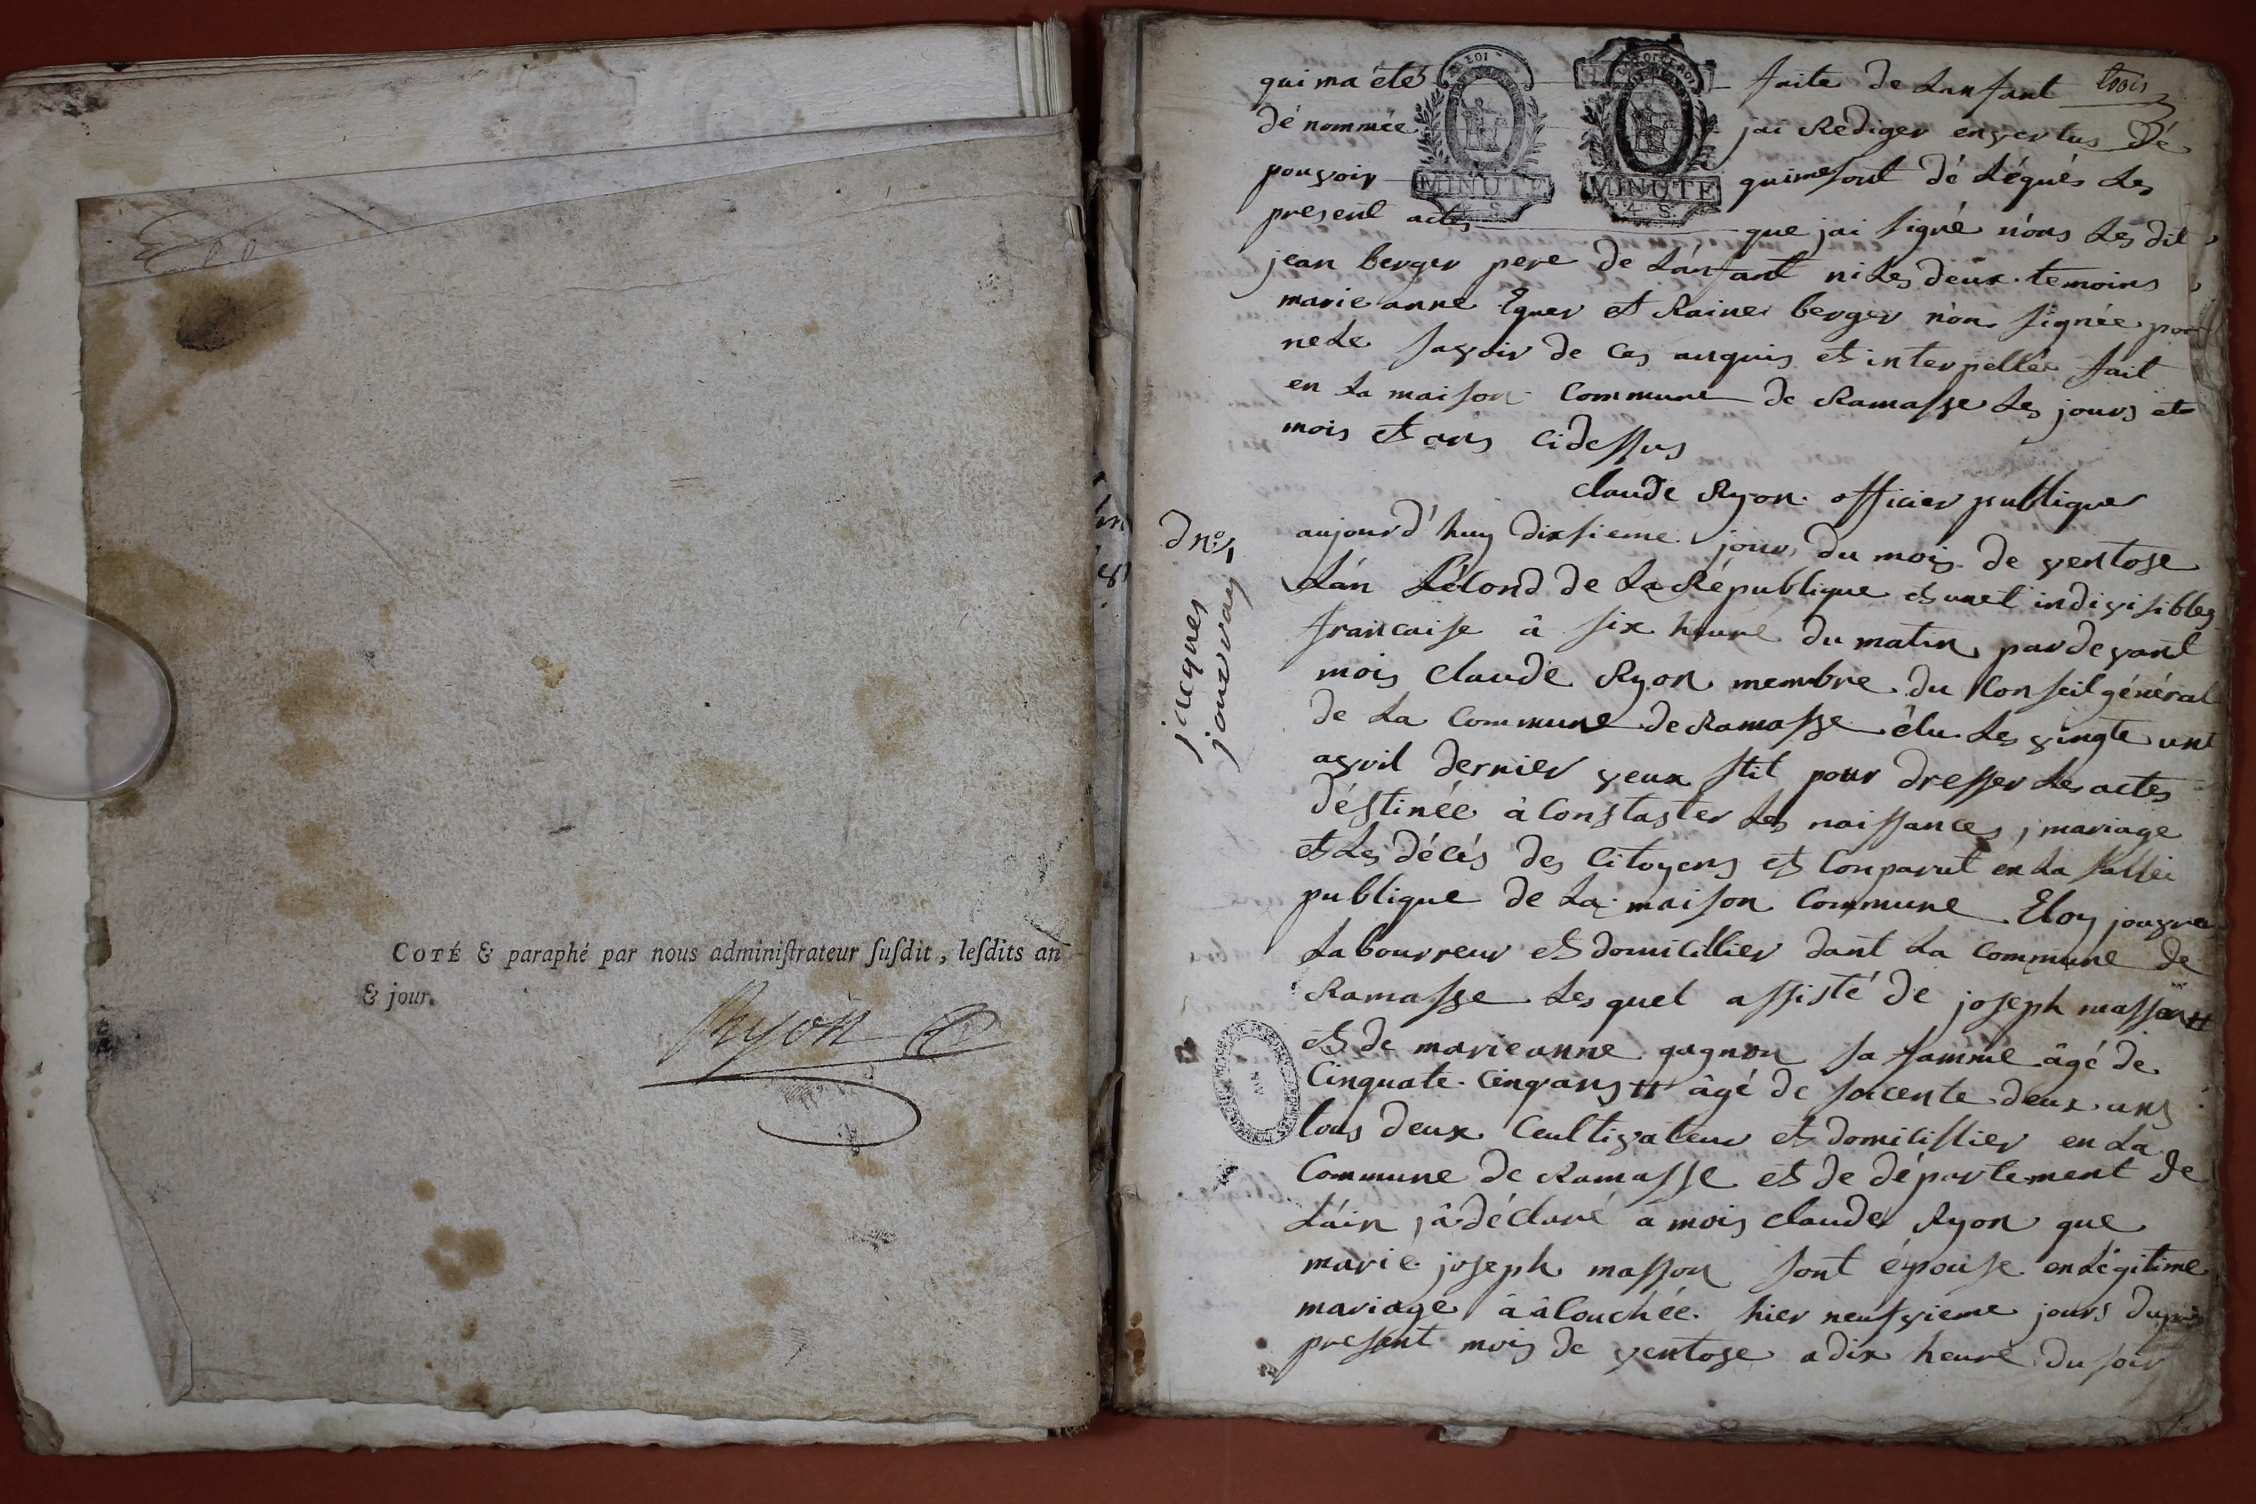 COTÉ & paraphé par nous adminiſtrateur ſuſdit, leſdits an
& jour.
Ryon
trois
qui ma été faite de Lanfant
dé nommée jai Rediger envertus dé
pouvoir quimesont dé Légués Les
present actes que jai signé nons Les dit
jean berger pere de Lánfant ni Les deux temoins
marie anne Eguer et Raine berger non signée pour
ne Le savoir de ces anquis et interpellée fait
en La maison Commune de Ramasse Les jours et
mois et ans cidessus
Claude Ryon officier publique
dno 1
jacques
jouvray
aujourd'huy dixsieme jour du mois de ventose
Lán sécond de La République et unet indivisibles
francaise â six heure du matin pardevant
mois Claude Ryon membre du Conseil général
de La Commune de Ramasse élu Les vingte unt
avril dernier veux stil pour dresser Les actes
déstinée à Constaster Les naissances, mariage
et Les décés des Citoyens et Conparut én La sallei
publique de La maison Commune Eloy jouvra
Labourreur et domicillier dant La Commune de
Ramasse Les quel assisté de joseph masson #
et de marieanne gagnon sa famme âgé de
Cinquate Cinqans # âgé de soicente deux ans
tous deux Ceultivateur et domicillier en La
Commune de Ramasse et de département de
Láin, â déclaré a mois Claude Ryon que
marie joseph masson sont épouse en Légitime
mariage â âcouchée hier neufvieme jours du
present mois de ventose a dix heure du soir
MINUTE
4 S.
MINUTE
4 S.